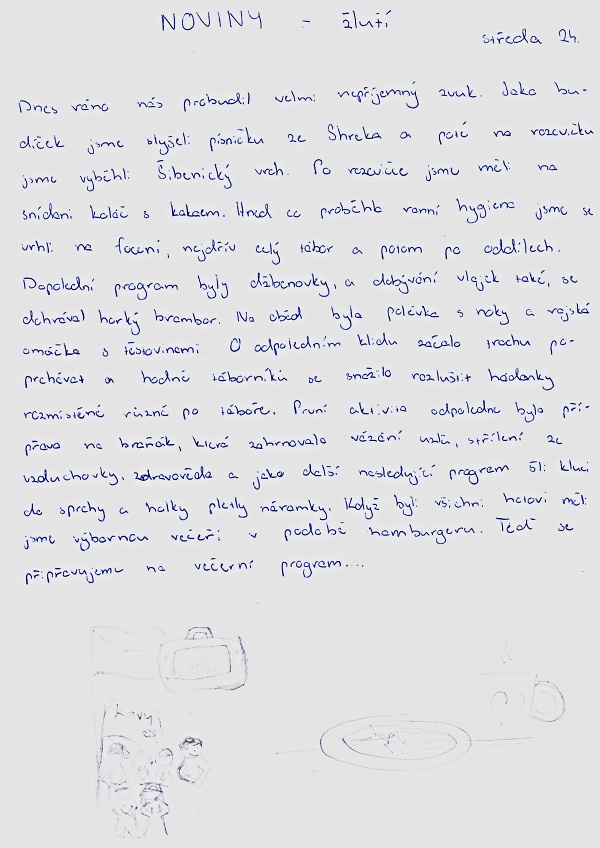 NOVINY - žlutí
středa 24.
Dnes ráno nás probudil velmi nepříjemný zvuk. Jako bu-
díček jsme slyšeli písničku ze Shreka a poté na rozcvičku
jsme vyběhli Šibenický vrch. Po rozcvičce jsme měli na
snídani koláč s kakaem. Hned co proběhla ranní hygiena jsme se
vrhli na focení, nejdřív celý tábor a potom po oddílech.
Dopolední program byly džbánovky, a dobývání vlajek také, se
dohrával horký brambor. Na oběd byla polévka s noky a rajská
omáčka s těstovinami. O odpoledním klidu začalo trochu po-
prchávat a hodně táborníků se snažilo rozluštit hádanky
rozmístěné různě po táboře. První aktivita odpoledne byla pří-
prava na braňák, která zahrnovala vázání uzlů, střílení ze
vzduchovky, zdravověda a jako další následující program šli kluci
do sprchy a holky pletly náramky. Když byli všichni hotovi měli
jsme výbornou večeři v podobě hamburgeru. Teď se
připravujeme na večerní program...